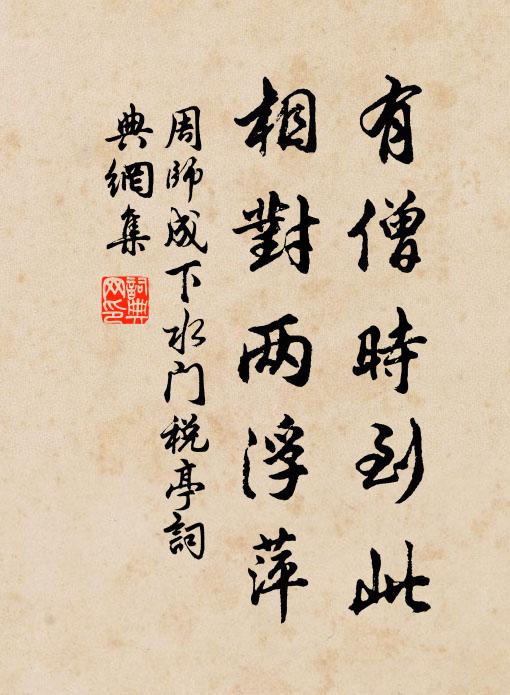 有僧時到此
相對两浮萍
周師成下水门税亭詞
典網集
詞典网印